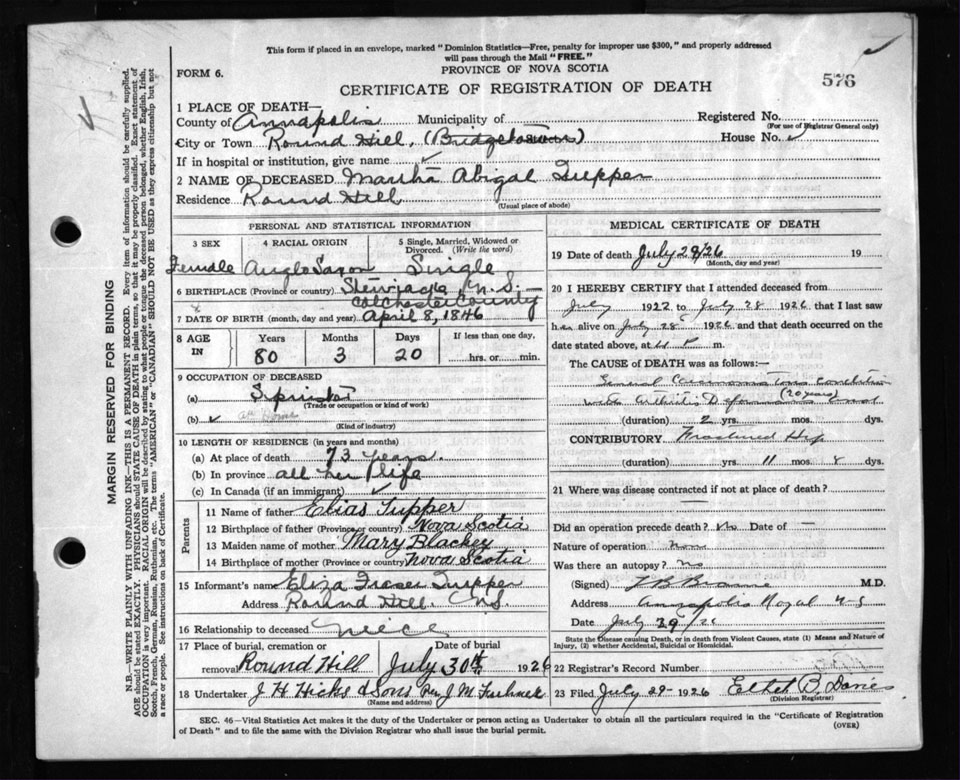 This form if placed in an envelope, marked "Dominion Statistics—Free, penalty for improper use $300," and properly addressed
will pass through the Mail "FREE."
PROVINCE OF NOVA SCOTIA
FORM 6.
576
CERTIFICATE OF REGISTRATION OF DEATH
1 PLACE OF DEATH—
County of Annapolis Municipality of Registered No.
(For use of Registrar General only)
City or Town Round Hill, (Bridgetown) House No.
If in hospital or institution, give name
2 NAME OF DECEASED Martha Abigal Tupper
Residence Round Hill
(Usual place of abode)
PERSONAL AND STATISTICAL INFORMATION
3 SEX 4 RACIAL ORIGIN 5 Single, Married, Widowed or
Divorced. (Write the word)
Female Anglo Saxon Single
6 BIRTHPLACE (Province or country) N.S.—
Colchester County
7 DATE OF BIRTH (month, day and year) April 8, 1846
8 AGE IN Years Months Days If less than one day,
80 3 20 hrs. or min.
9 OCCUPATION OF DECEASED
(a)
(Trade or occupation or kind of work)
(b) At Home
(Kind of industry)
10 LENGTH OF RESIDENCE (in years and months)
(a) At place of death 73 years.
(b) In province all her life
(c) In Canada (if an immigrant)
Parents
11 Name of father Elias Tupper
12 Birthplace of father (Province or country) Nova Scotia
13 Maiden name of mother Mary Blackey
14 Birthplace of mother (Province or country) Nova Scotia
15 Informant's name Eliza Fraser Tupper
Address Round Hill. NS.
16 Relationship to deceased niece
17 Place of burial, cremation or Date of burial
removal Round Hill July 30th 1926
18 Undertaker J H Hicks & Sons Rev. J. M.
(Name and address)
MEDICAL CERTIFICATE OF DEATH
19 Date of death July 28/26 19
(Month, day and year)
20 I HEREBY CERTIFY that I attended deceased from
July 1922 to July 28 1926 that I last saw
her alive on July 28 1926 and that death occurred on the
date stated above, at P m.
The CAUSE OF DEATH was as follows:—
General Condition
(20 years)
with Arthritis Deformans
(duration) 2 yrs. mos. dys.
CONTRIBUTORY Fractured Hip
(duration) yrs. 11 mos. 8 dys.
21 Where was disease contracted if not at place of death?
Did an operation precede death? No Date of —
Nature of operation
Was there an autopsy? No
(Signed) M.D.
Address Annapolis Royal N-S
Date July /26
State the Disease causing Death, or in death from Violent Causes, state (1) Means and Nature of
Injury, (2) whether Accidental, Suicidal or Homicidal.
22 Registrar's Record Number
23 Filed July 29- 1926 Ethel B. Davies
(Division Registrar)
SEC. 46—Vital Statistics Act makes it the duty of the Undertaker or person acting as Undertaker to obtain all the particulars required in the "Certificate of Registration
of Death" and to file the same with the Division Registrar who shall issue the burial permit.
(OVER)
MARGIN RESERVED FOR BINDING
N.B.—WRITE PLAINLY WITH UNFADING INK—THIS IS A PERMANENT RECORD. Every item of information should be carefully supplied.
AGE should be stated EXACTLY. PHYSICIANS should STATE CAUSE OF DEATH in plain terms, so that it may be properly classified. Exact statement of
OCCUPATION is very important. RACIAL ORIGIN will be described by stating to what people or tongue the deceased person belonged, whether English, Irish,
Scotch, French, German, Russian, Ruthenian, etc. The terms "AMERICAN" or "CANADIAN" SHOULD NOT BE USED as they express citizenship but not
a race or people. See instructions on back of Certificate.